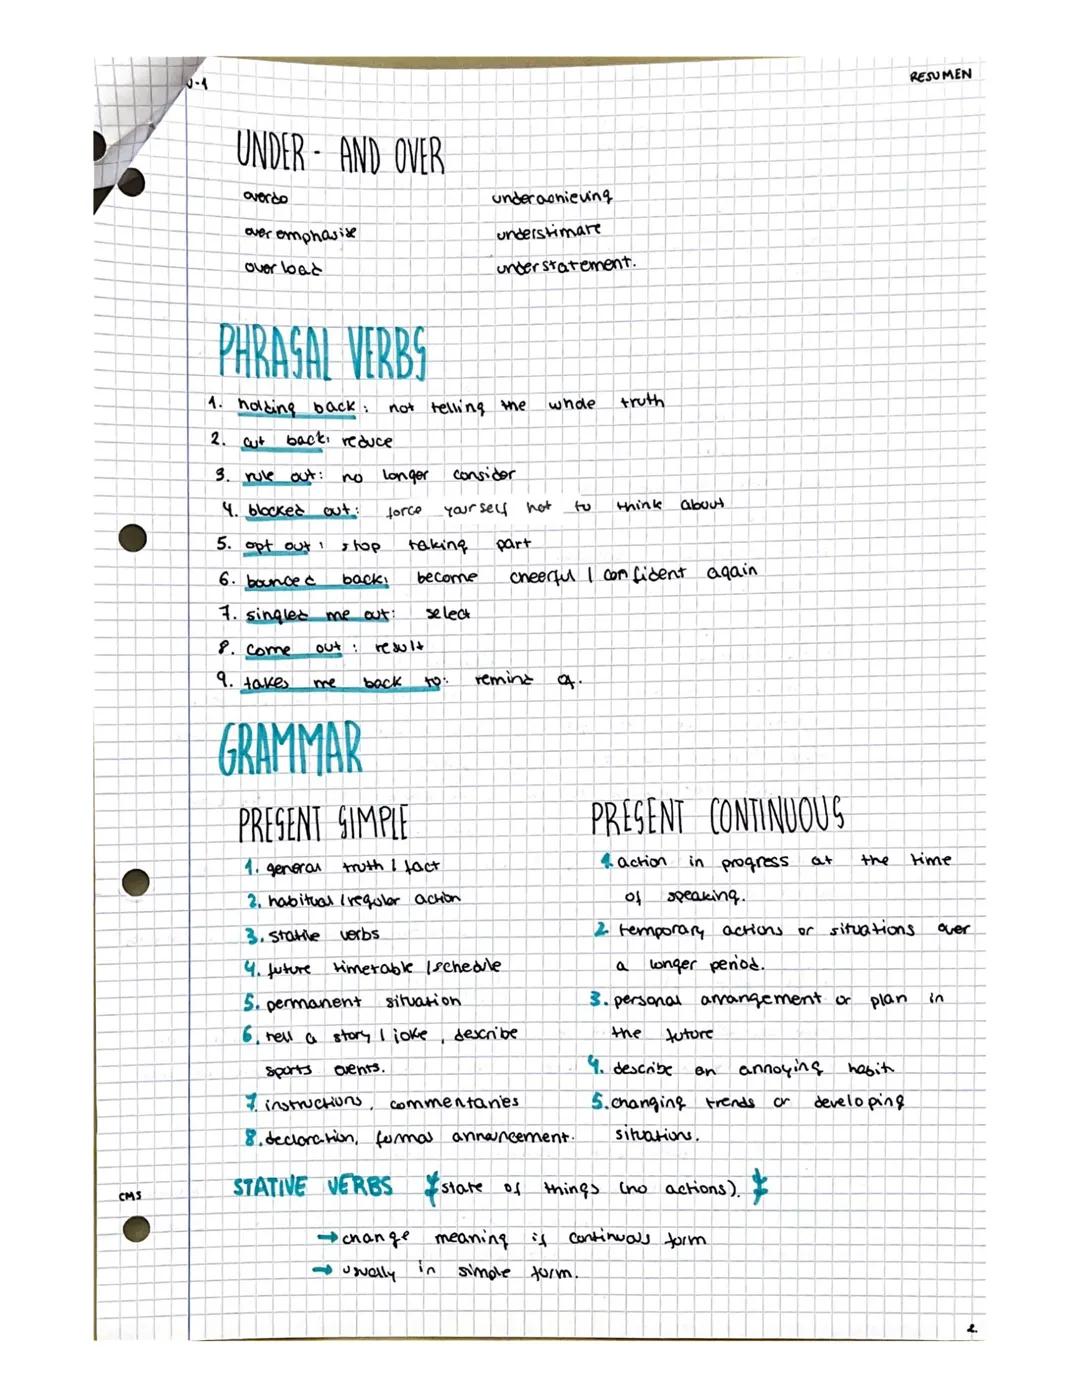 U-1
RESUMEN
UNDER- AND OVER
overdo underachieving
overemphasise understimate
overload understatement.
PHRASAL VERBS
1. holding back: not telling the whole truth
2. cut back: reduce
3. rule out: no longer consider
4. blocked out: force yourself not to think about
5. opt out: stop taking part
6. bounced back: become cheerful / confident again
7. singled me out: select
8. come out: result
9. takes me back to: remind of.
GRAMMAR
PRESENT SIMPLE
1. general truth / fact
2. habitual / regular action
3. stative verbs
4. future timetable / schedule
5. permanent situation
6. tell a story / joke, describe
sports events.
7. instructions, commentaries
8. declaration, formal announcement.
PRESENT CONTINUOUS
1. action in progress at the time
of speaking.
2. temporary actions or situations over
a longer period.
3. personal arrangement or plan in
the future
4. describe an annoying habit
5. changing trends or developing
situations.
STATIVE VERBS * state of things (no actions). *
→ change meaning if continuous form
→ usually in simple form.
CMS
2.